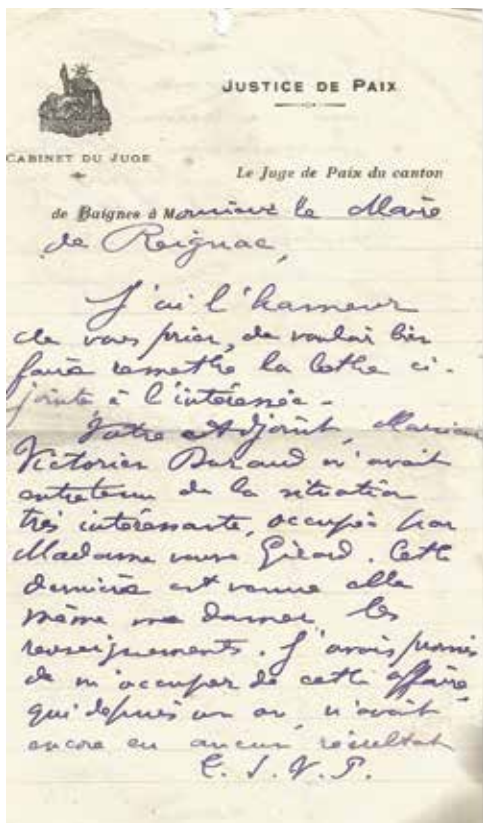 JUSTICE DE PAIX
CABINET DU JUGE
Le Juge de Paix du canton
de Baignes à Monsieur le Maire
de Reignac,
J'ai l'honneur
de vous prier, de vouloir bien
faire remettre la lettre ci-
jointe à l'intéressée.
Votre Adjoint, Monsieur
Victorien Durand m'avait
entretenu de la situation
très intéressante, occupée par
Madame veuve Girard. Cette
dernière est venue elle
même me donner les
renseignements. J'avais promis
de m'occuper de cette affaire,
qui depuis un an, n'avait
encore eu aucun résultat
T. S. V. P.